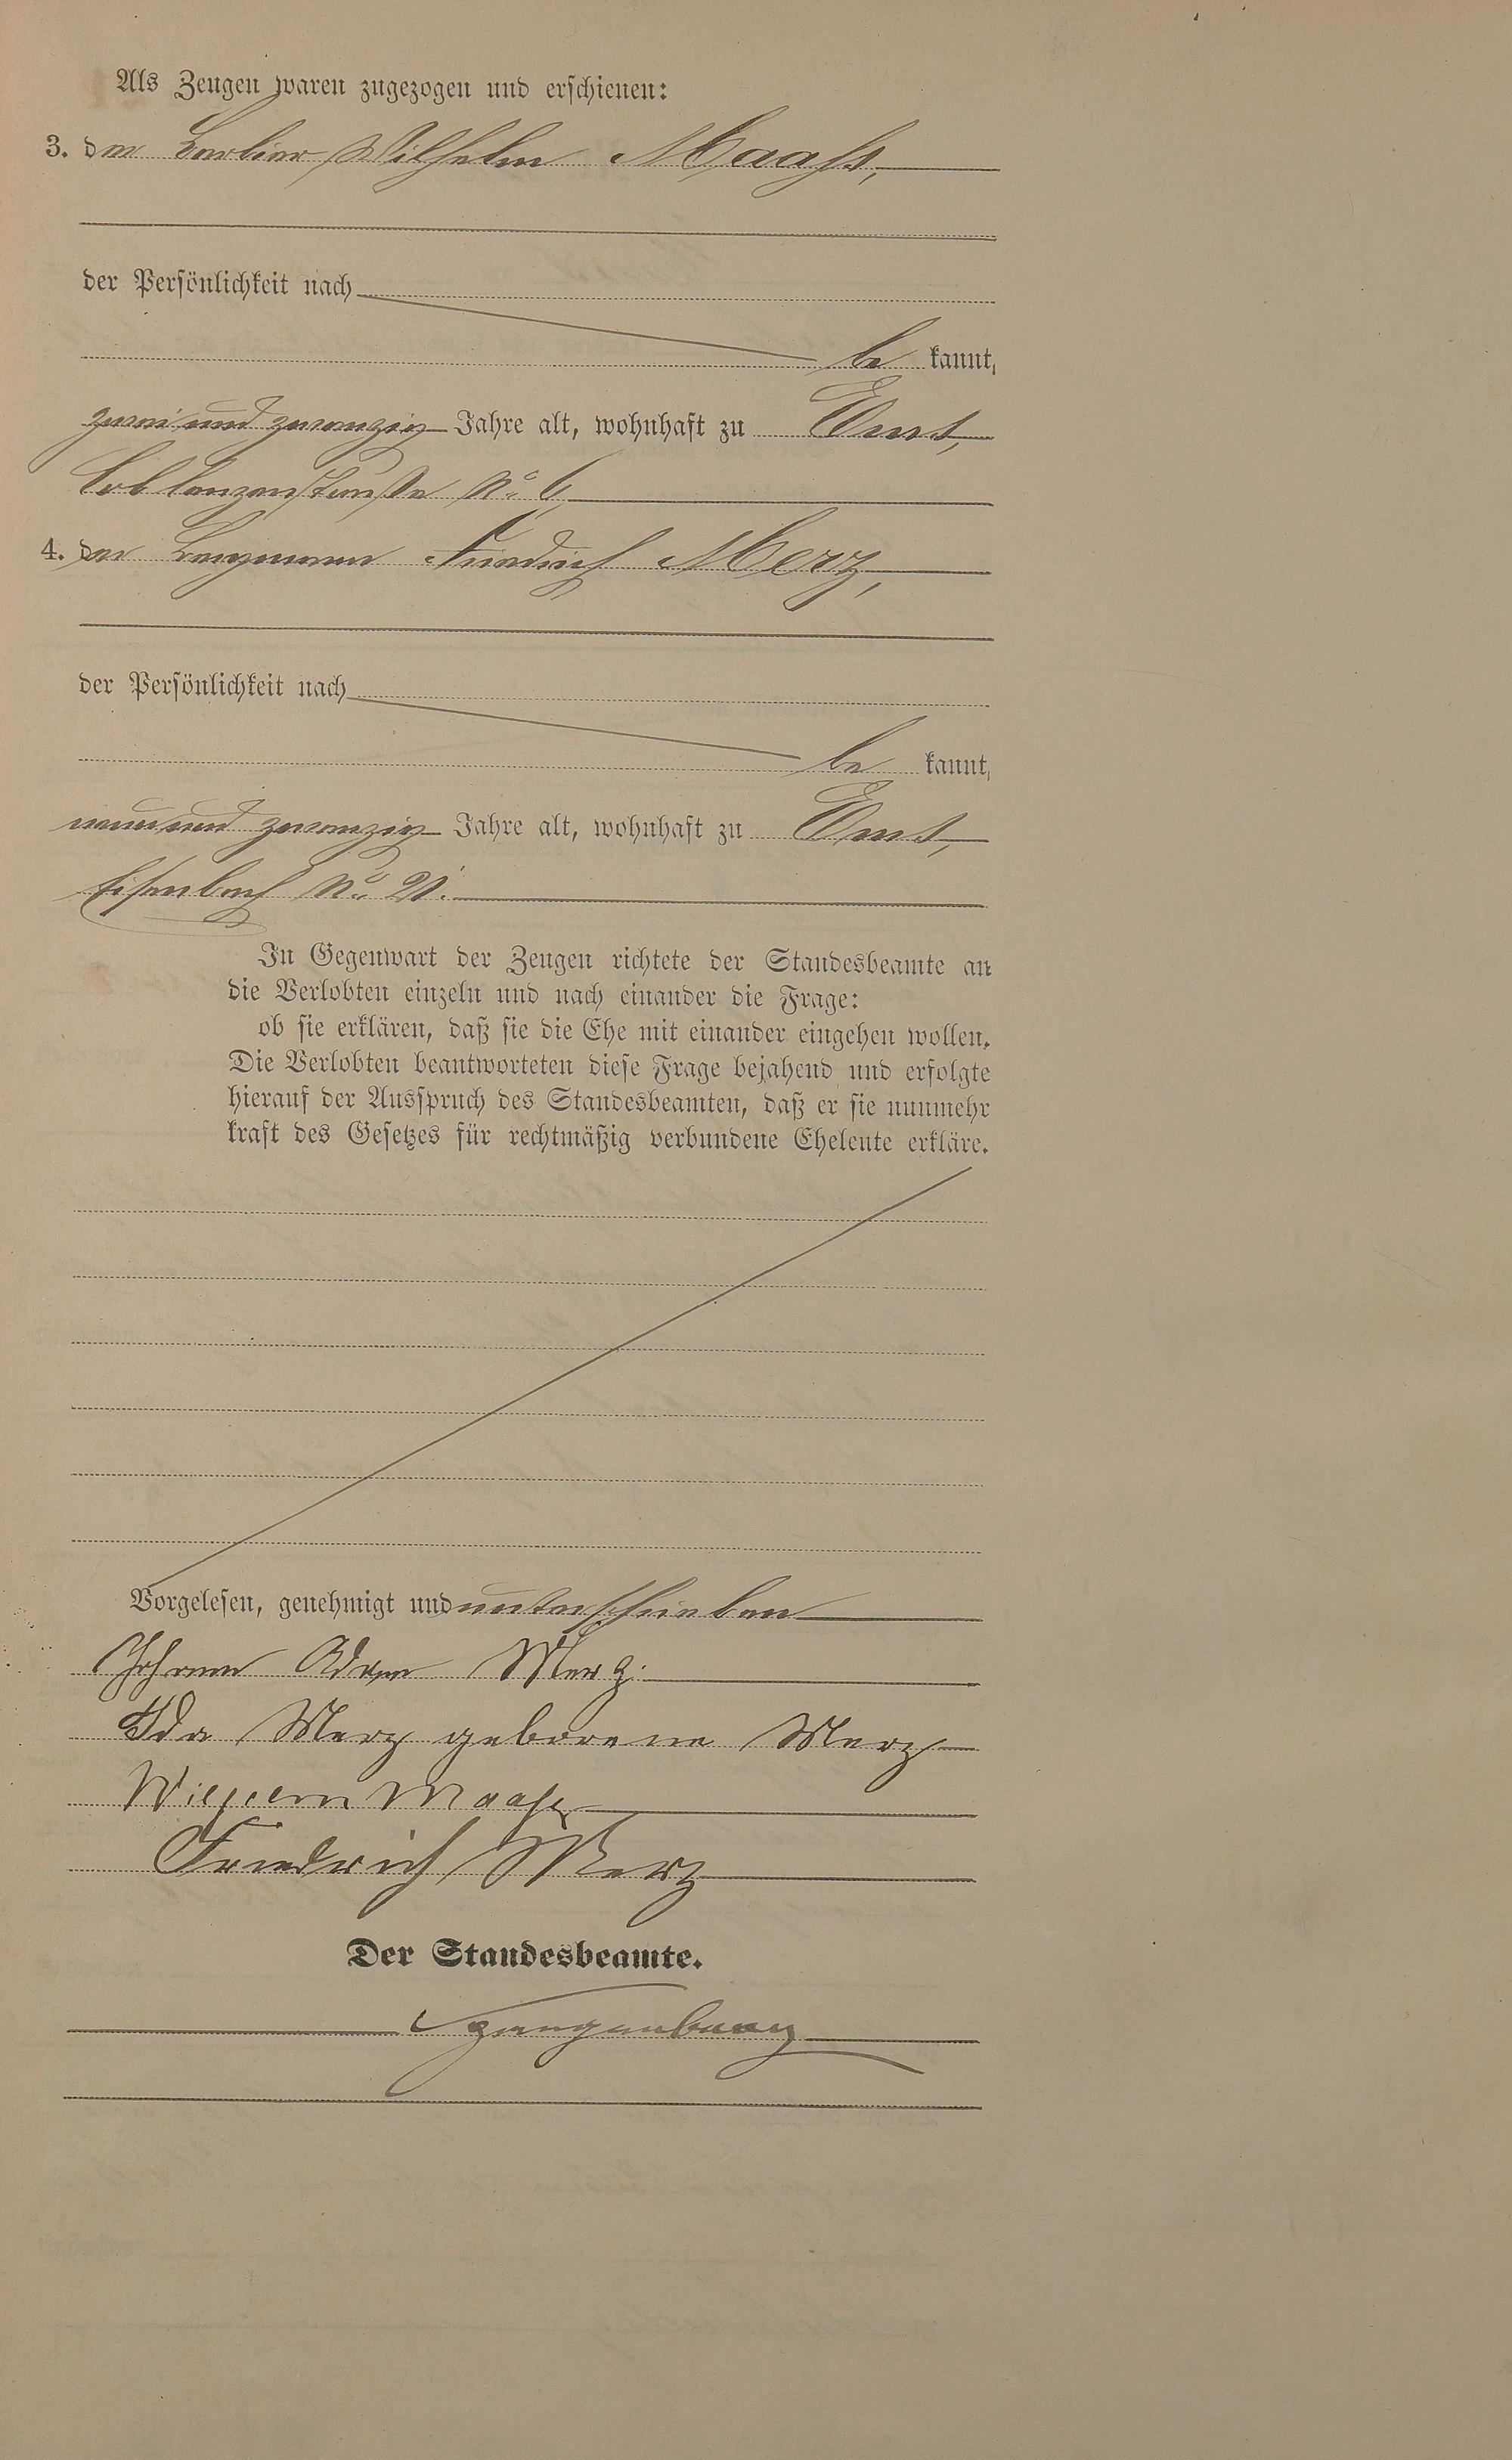 Als Zeugen waren zugezogen und erschienen:
3. der Barbier Wilhelm Maass,
der Persönlichkeit nach
be kannt,
zwei und zwanzig Jahre alt, wohnhaft zu Ems,
Coblenzerstraße No. 6
4. der Bergmann Friedrich Merz,
der Persönlichkeit nach
be kannt,
neun und zwanzig Jahre alt, wohnhaft zu Ems,
Eisenbach No. 21.
In Gegenwart der Zeugen richtete der Standesbeamte an
die Verlobten einzeln und nach einander die Frage:
ob sie erklären, daß sie die Ehe mit einander eingehen wollen.
Die Verlobten beantworteten diese Frage bejahend und erfolgte
hierauf der Ausspruch des Standesbeamten, daß er sie nunmehr
kraft des Gesetzes für rechtmäßig verbundene Eheleute erkläre.
Vorgelesen, genehmigt und unterschrieben
Johann Adam Merz.
Ida Merz geborene Merz
Wilhelm Maass
Friedrich Merz
Der Standesbeamte.